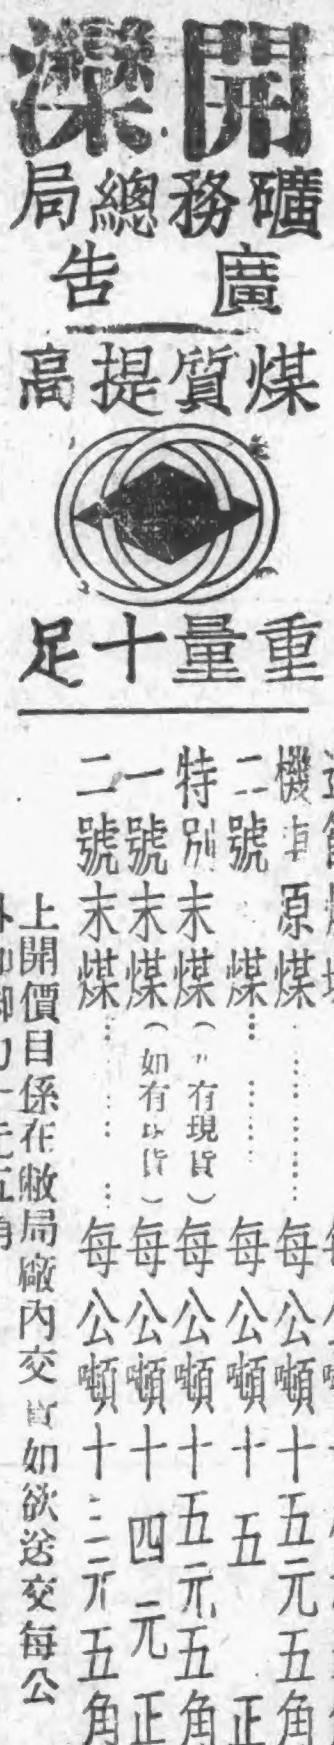 開灤
礦務總局
廣告
煤質提高
重量十足
機車原煤………每公噸十五元五角
二號煤………每公噸十五 正
特別末煤（ 有現貨）每公噸十五元五角
一號末煤（如有 貨）每公噸十四元正
二號末煤………每公噸十 元五角
上開價目係在敝局廠內交 如欲送交每公